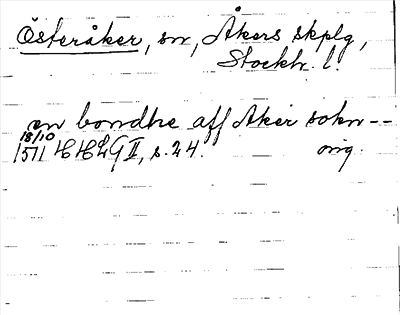 Österåker, sn, Åkers skplg,
Stockh. l.
en bondhe aff Aker sokn --
18/10
1511 HHLG II, s. 24. orig.